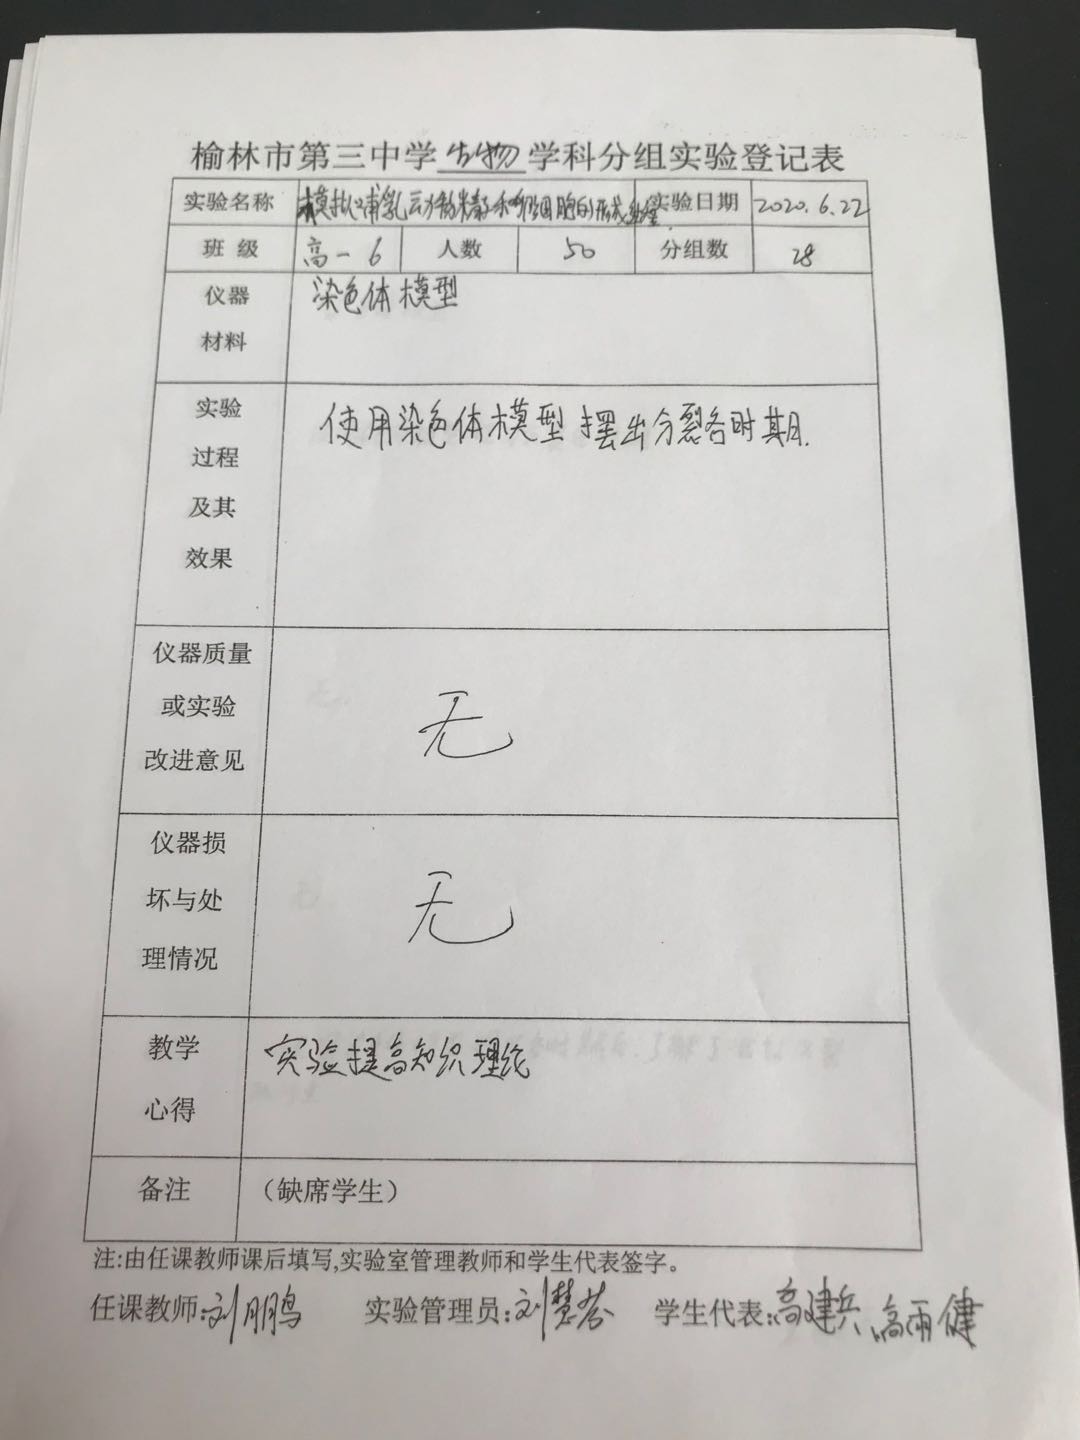 榆林市第三中学生物学科分组实验登记表
实验名称 模拟哺乳动物精子和卵细胞的形成过程 实验日期 2020.6.22
班级 高一6 人数 50 分组数 28
仪器 染色体模型
材料
实验 使用染色体模型摆出分裂各时期.
过程
及其
效果
仪器质量
或实验 无
改进意见
仪器损
坏与处 无
理情况
教学 实验提高知识理论
心得
备注 （缺席学生）
注:由任课教师课后填写,实验室管理教师和学生代表签字。
任课教师:刘鹏 实验管理员:刘慧 学生代表:高建兵、高雨健